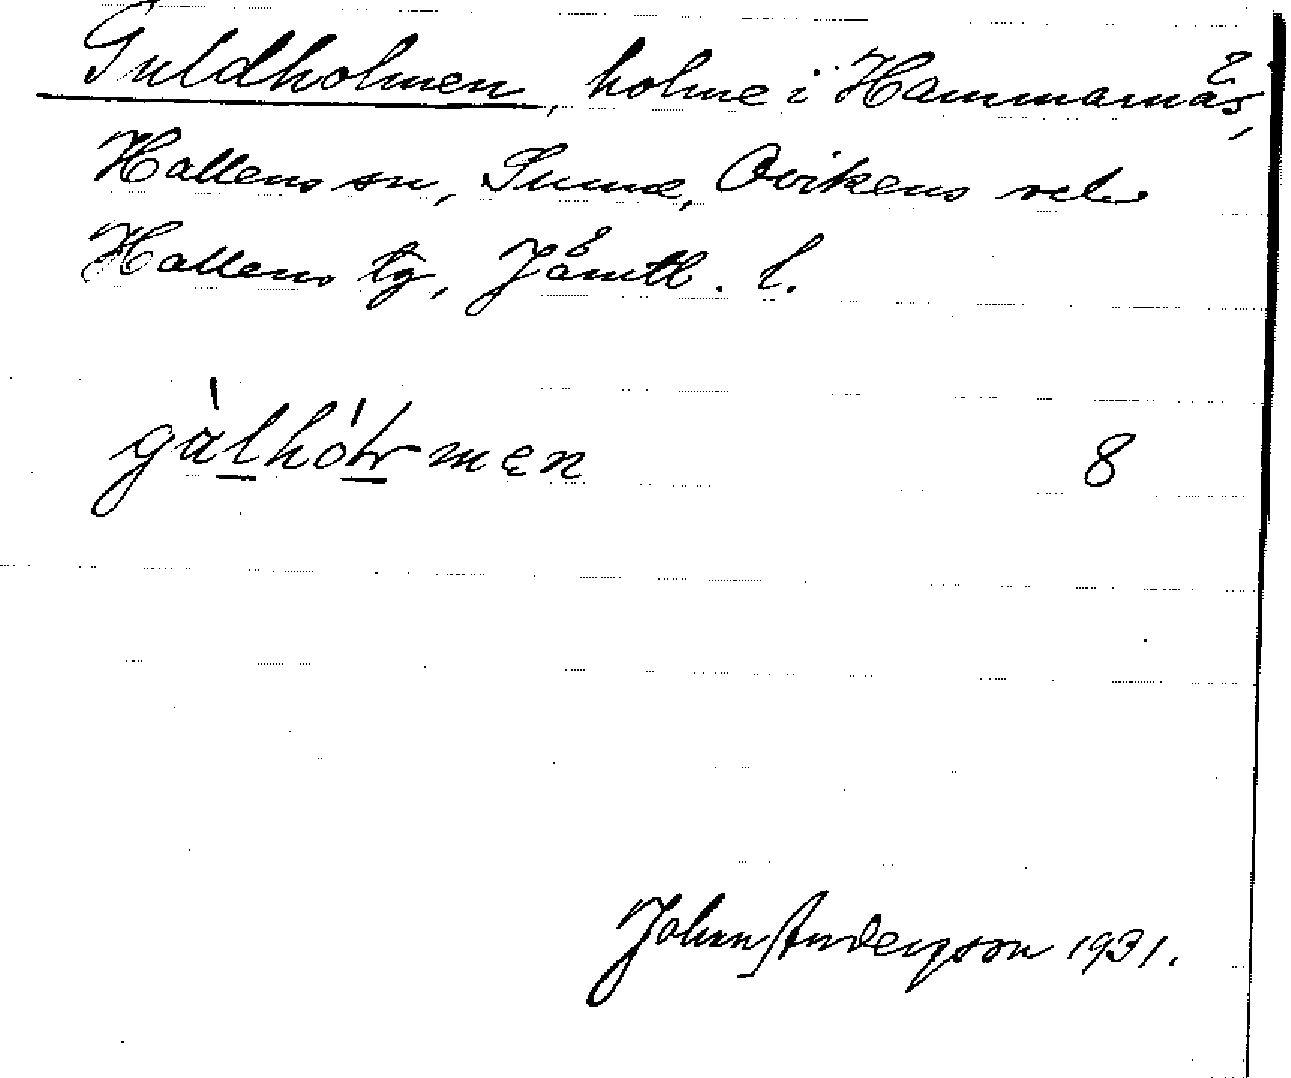 Guldholmen, holme i Hammarnäs,
Hallens sn, Sunne, Ovikens och
Hallens tg, Jämtl. l.
8
Johan Anderson 1931.